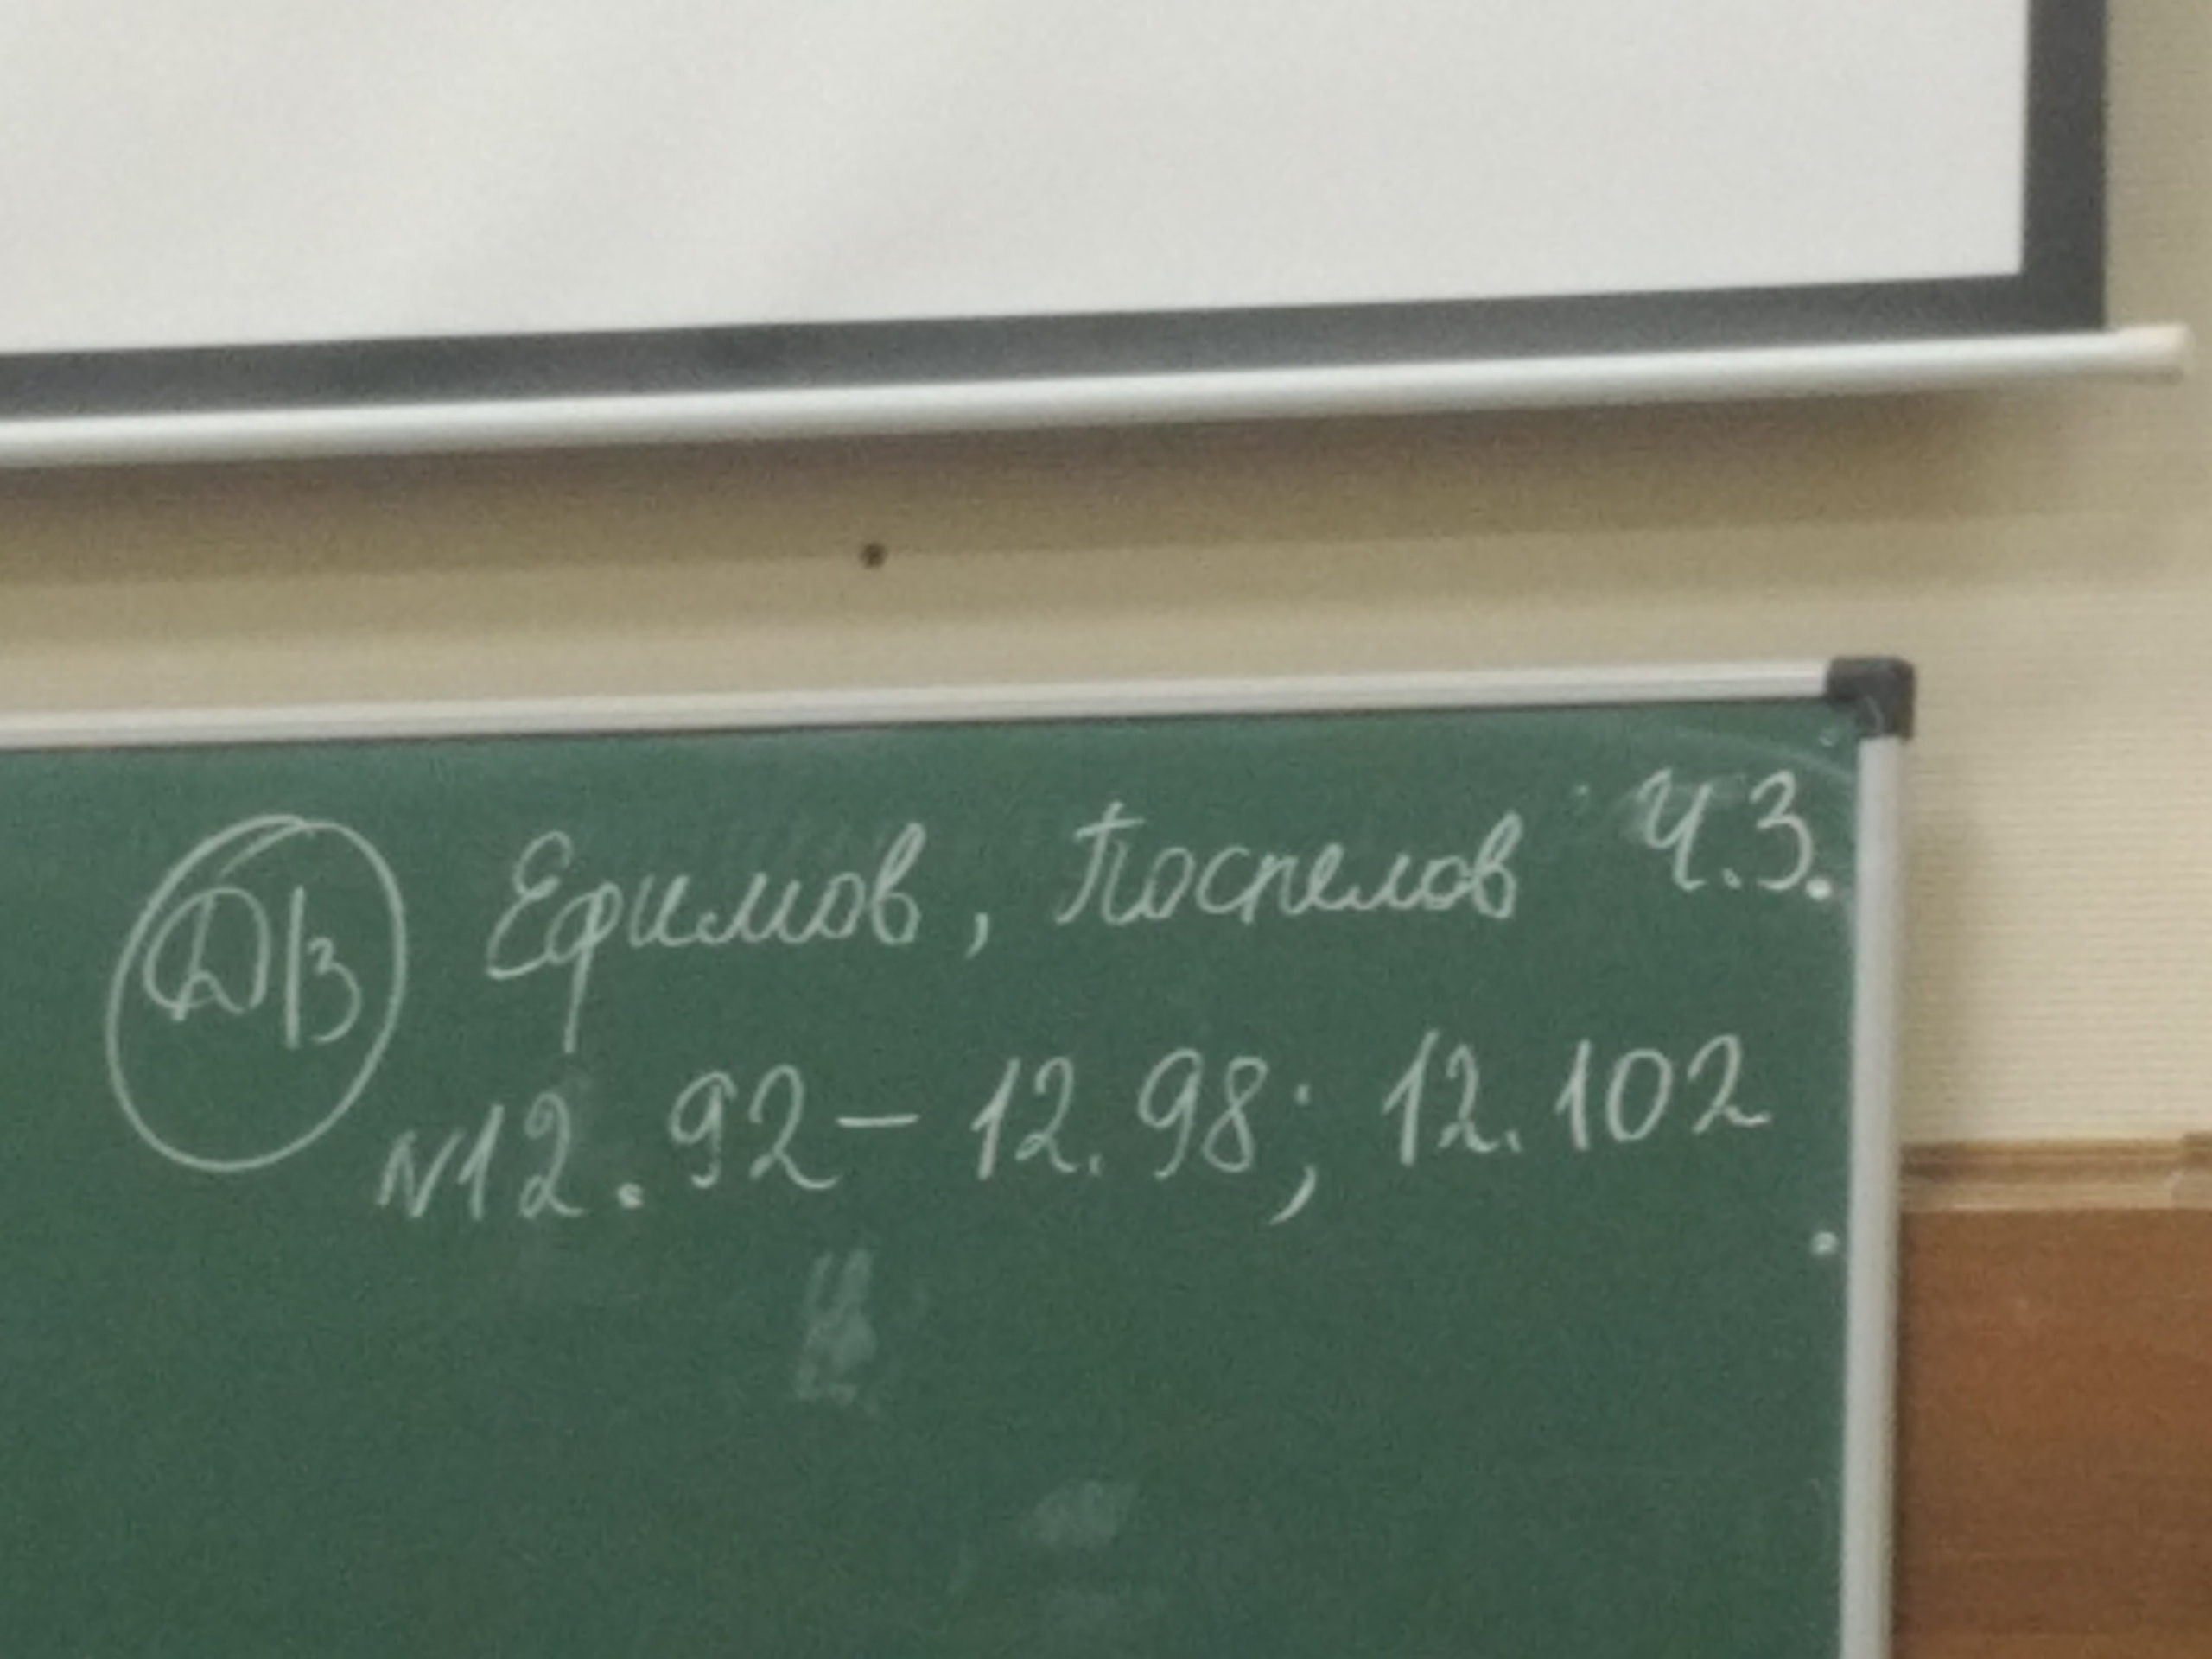 Д/З Ефимов, Поспелов Ч.3.
N12.92-12.98; 12.102